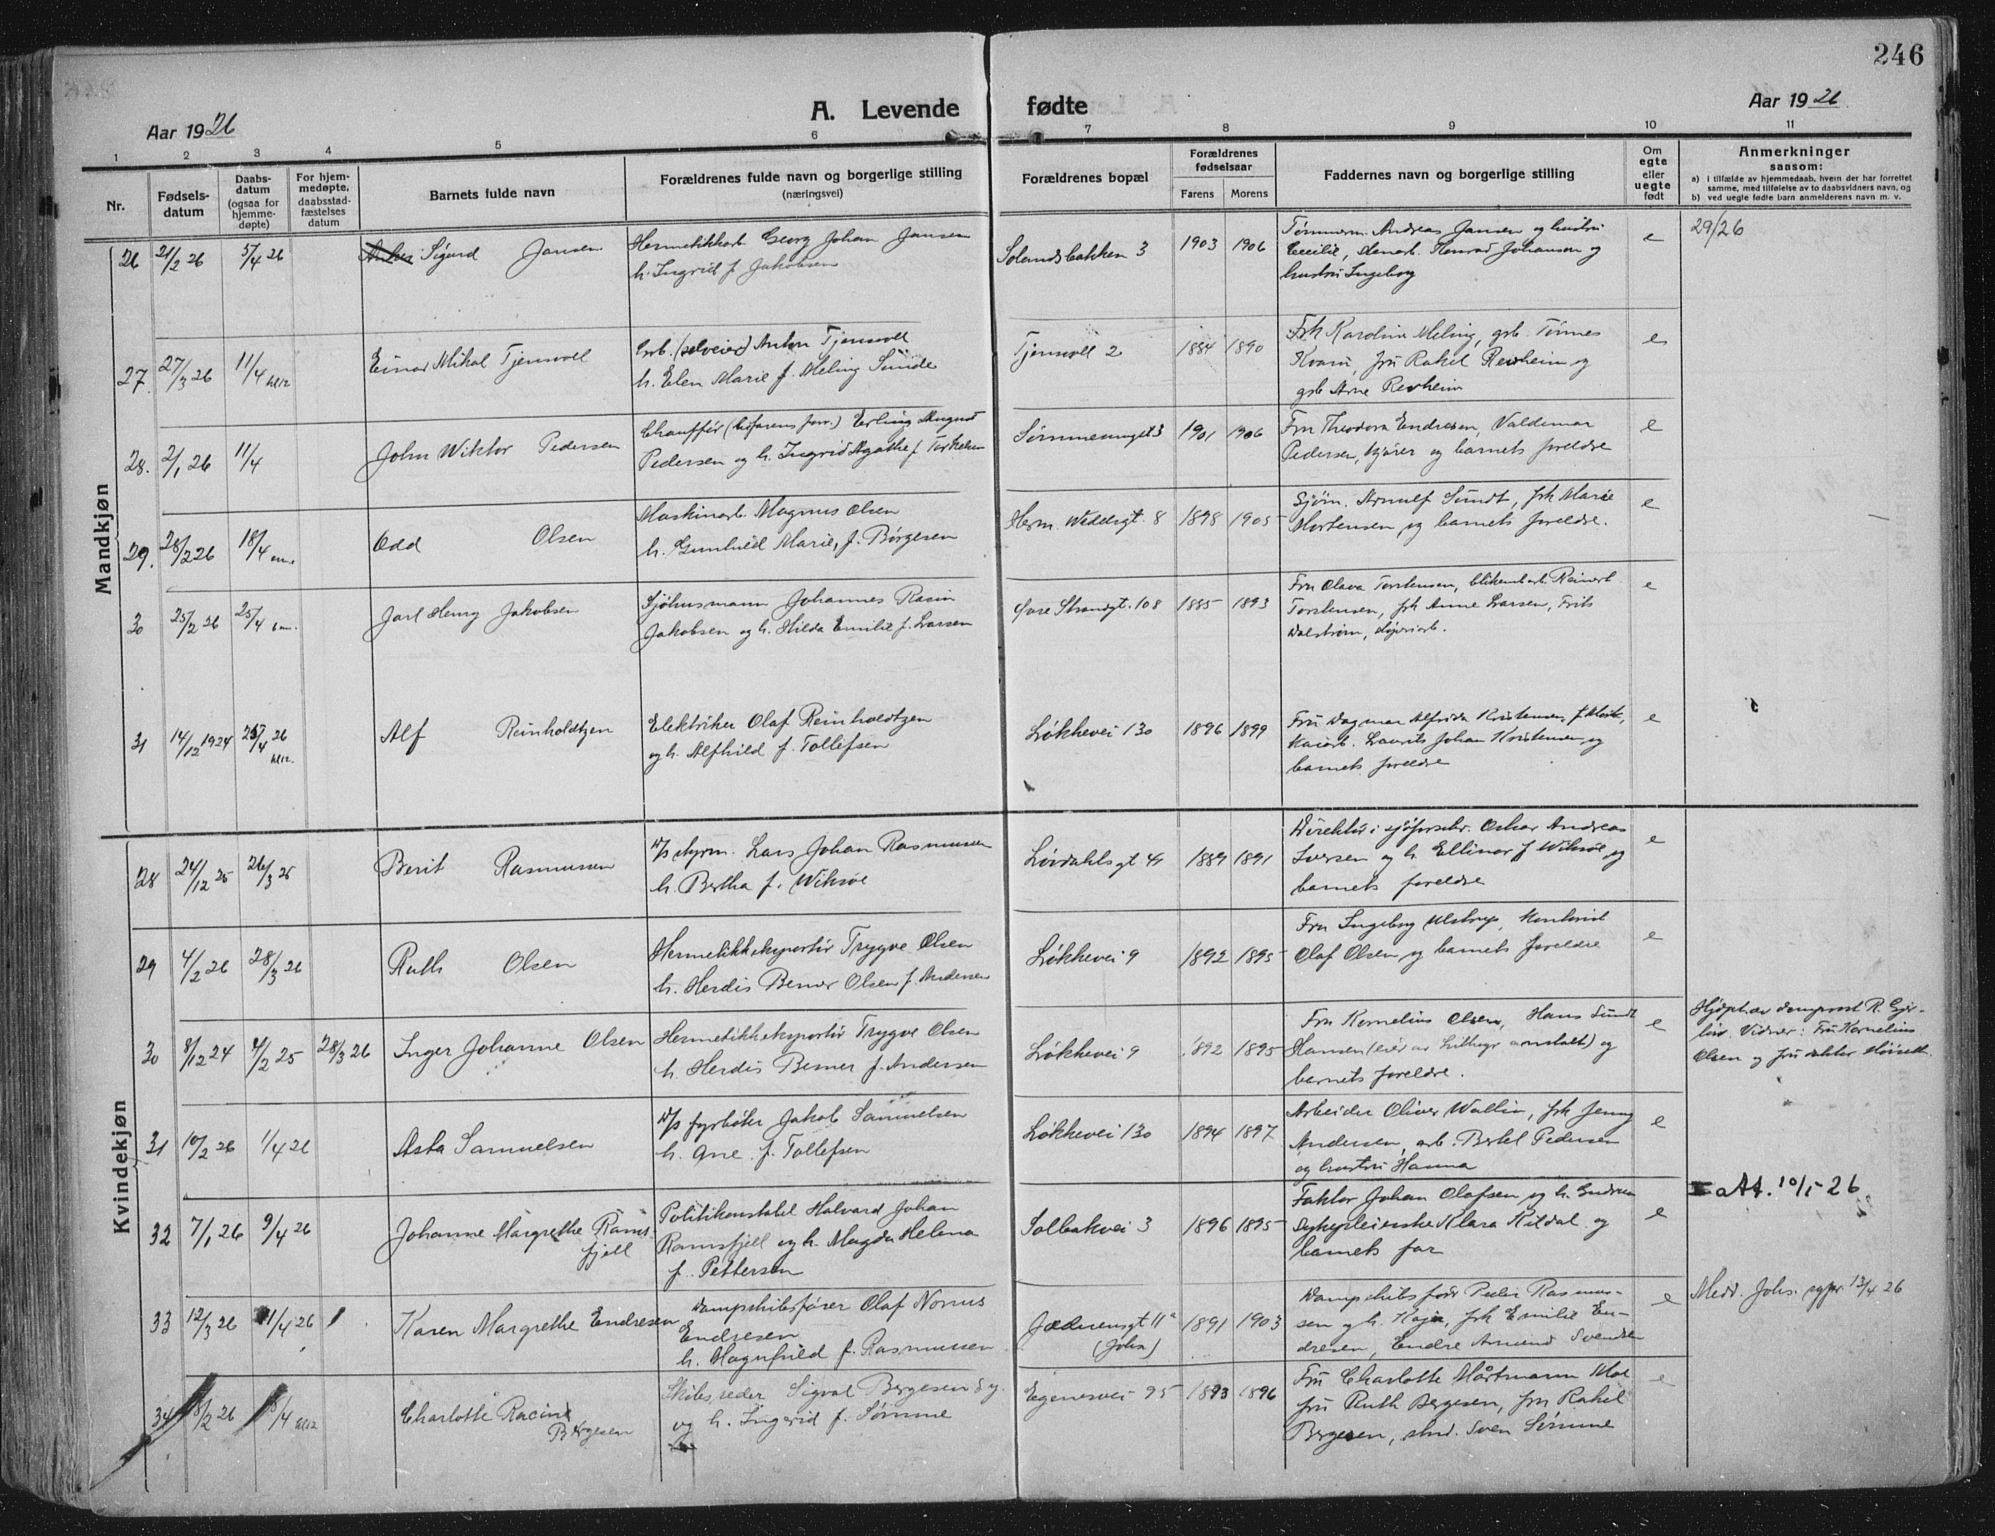 246
Aar 1926
A. Levende fødte
Aar 1926
1 2 3 4 5 6 7 8 9 10 11
Nr.
Fødsels-
datum
Daabs-
datum
(ogsaa for
hjemme-
døpte)
For hjem-
medøpte,
daabsstad-
fæstelses
datum
Barnets fulde navn
Forældrenes fulde navn og borgerlige stilling
(næringsvei)
Forældrenes bopæl
Forældrenes
fødselsaar
Farens Morens
Faddernes navn og borgerlige stilling
Om
egte
eller
uegte
født
Anmerkninger
saasom:
a) i tilfælde av hjemmedaab, hvem der har forrettet
samme, med tilføielse av to daabsvidners navn, og
b) ved uegte fødte barn anmelderens navn m. v.
Mandkjøn
26 21/2 26 5/4 26 Sigurd Jansen
Hermetikkarb. Georg Johan Jansen
h. Ingrid f. Jakobsen
Solandsbakken 3 1903 1906
Tømmerm. Andreas Jansen og hustru
Cecilie, Konrad Johansen og
hustru Ingeborg
e 29/26
27. 27/3 26 11/4 Einar Mikal Tjensvoll
Grb. (selveier) Anton Tjensvoll
h. Elen Marie f. Meling Sunde
Tjensvoll 2 1884 1890
Frk Karoline Meling, grb. Tønnes
Kvam, fru Rakel Revheim og
grb Arne Revheim
e
28. 2/1 26 11/4 John Wiktor Pedersen
Chauffør Erling August
Pedersen og h. Ingrid Agathe f. Torkelsen
1901 1906
Fru Theodora Endresen, Valdemar
Pedersen, kjører og barnets foreldre
e
29. 28/2 26 18/4 em. Odd Olsen
Maskinarb. Magnus Olsen
h. Gunhild Marie, f. Børgesen
Herm. Wedelsgt. 8 1898 1905
Sjøm. Arnulf Sundt, frk Marie
Mortensen og barnets foreldre.
e
30 25/2 26 25/4 Jarl Henry Jakobsen
Sjøhusmann Johannes Rasin
Jakobsen og h. Hilda Emilie f. Larsen
Øvre Strandgt. 108 1885 1893
Fru Olava Torstensen, blikemb.arb. Reinert
Torstensen, frk Anne Larsen, Frits
Walstrøm,
e
31 14/12 1924 25/4 26 Alf Reinholdtzen
Elektriker Olaf Reinholdtzen
og h. Alfhild f. Tollefsen
Løkkevei 130 1896 1899
Fru Dagmar Alfrida Kristensen,
Laurits Johan Kristensen og
barnets foreldre
e
Kvindekjøn
28 24/12 25 26/3 26 Berit Rasmussen
D/s styrm. Lars Johan Rasmussen
h. Bertha f. Wiksøe
Løvdahlsgt 4 1889 1891
Direktør i sjøforsikr. Oskar Andreas
Iversen og h. Ellinor f. Wiksøe og
barnets foreldre
e
29 4/2 26 28/3 26 Ruth Olsen
Hermetikkeksportør Trygve Olsen
h. Herdis Berner Olsen f. Andersen
Løkkevei 9 1892 1895
Fru Ingeborg Ulstrup, Kontorist
Olaf Olsen og barnets foreldre
e
30 8/12 24 4/2 25 28/3 26 Inger Johanne Olsen
Hermetikkeksportør Trygve Olsen
h. Herdis Berner f. Andersen
Løkkevei 9 1892 1895
Fru Kornelius Olsen, Hans Sundt
Hansen (eier av Lithogr anstalt) og
barnets foreldre.
e
Hjdøpt av domprost R. Gjer-
løw. Vidner: Fru Kornelius
Olsen og fru doktor
31 10/2 26 1/4 26 Asta Samuelsen
D/s fyrbøter Jakob Samuelsen
h. Ane f. Tollefsen
Løkkevei 130 1894 1897
Arbeider Oliver Wallin, frk Jenny
Andersen, arb. Bertel Pedersen
og hustru Hanna
e
32 7/1 26 9/4 26 Johanne Margrethe Rams
fjell
Politikonstabel Halvard Johan
Ramsfjell og h. Magda Helena
f. Pettersen
Solbakvei 3 1896 1895
Faktor Johan Olafsen og h. Endrea
Sykepleierske Klara Kildal og
barnets far
e
At. 10/1-26
33 12/3 26 11/4 26 Karen Margrethe Endresen
Dampskibsfører Olaf Norius
Endresen
h. Magnhild f. Rasmussen
Jædrensgt 11a
(Joha)
1891 1903
Dampskibsfører Peder Rasmus-
sen og h. Kaja, frk Emilie En-
dresen, Endre Amund Svendsen
e
Medd. Johs. sogpr. 13/4 26
34 18/2 26 18/4 Charlotte Racine
Bergesen
Skibsreder Sigval Bergesen d.y.
og h. Ingerid f. Sømme
Egenesvei 95 1893 1896
Fru Charlotte Mårtmann Moe
fru Ruth Bergesen, fru Rakel
Bergesen, stud. Sven Sømme
e